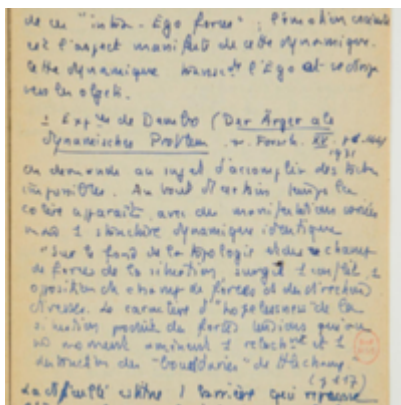 de ces "intra-Ego forces" ; l'émotion
est l'aspect manifeste de cette dynamique.
Cette dynamique l'Ego et se dirige
vers un objet.
: Exp de Dembo (Der Ärger als
dynamisches Problem . Forsch. XV.
1931
on demande au sujet d'accomplir des
impossibles. Au bout d'un certain temps la
colère apparaît, avec des manifestations variées
mais 1 structure dynamique identique
"Sur le fond de la topologie et du champ
de forces de la situation, surgit 1 conflit, 1
opposition de champ de forces et de directions
diverses. Le caractère d'"hopelessness" de la
situation produit des forces qui
moment amènent 1 et 1
destruction des "boundaries" de
(p 117)
La difficulté 1 barrière qui repousse